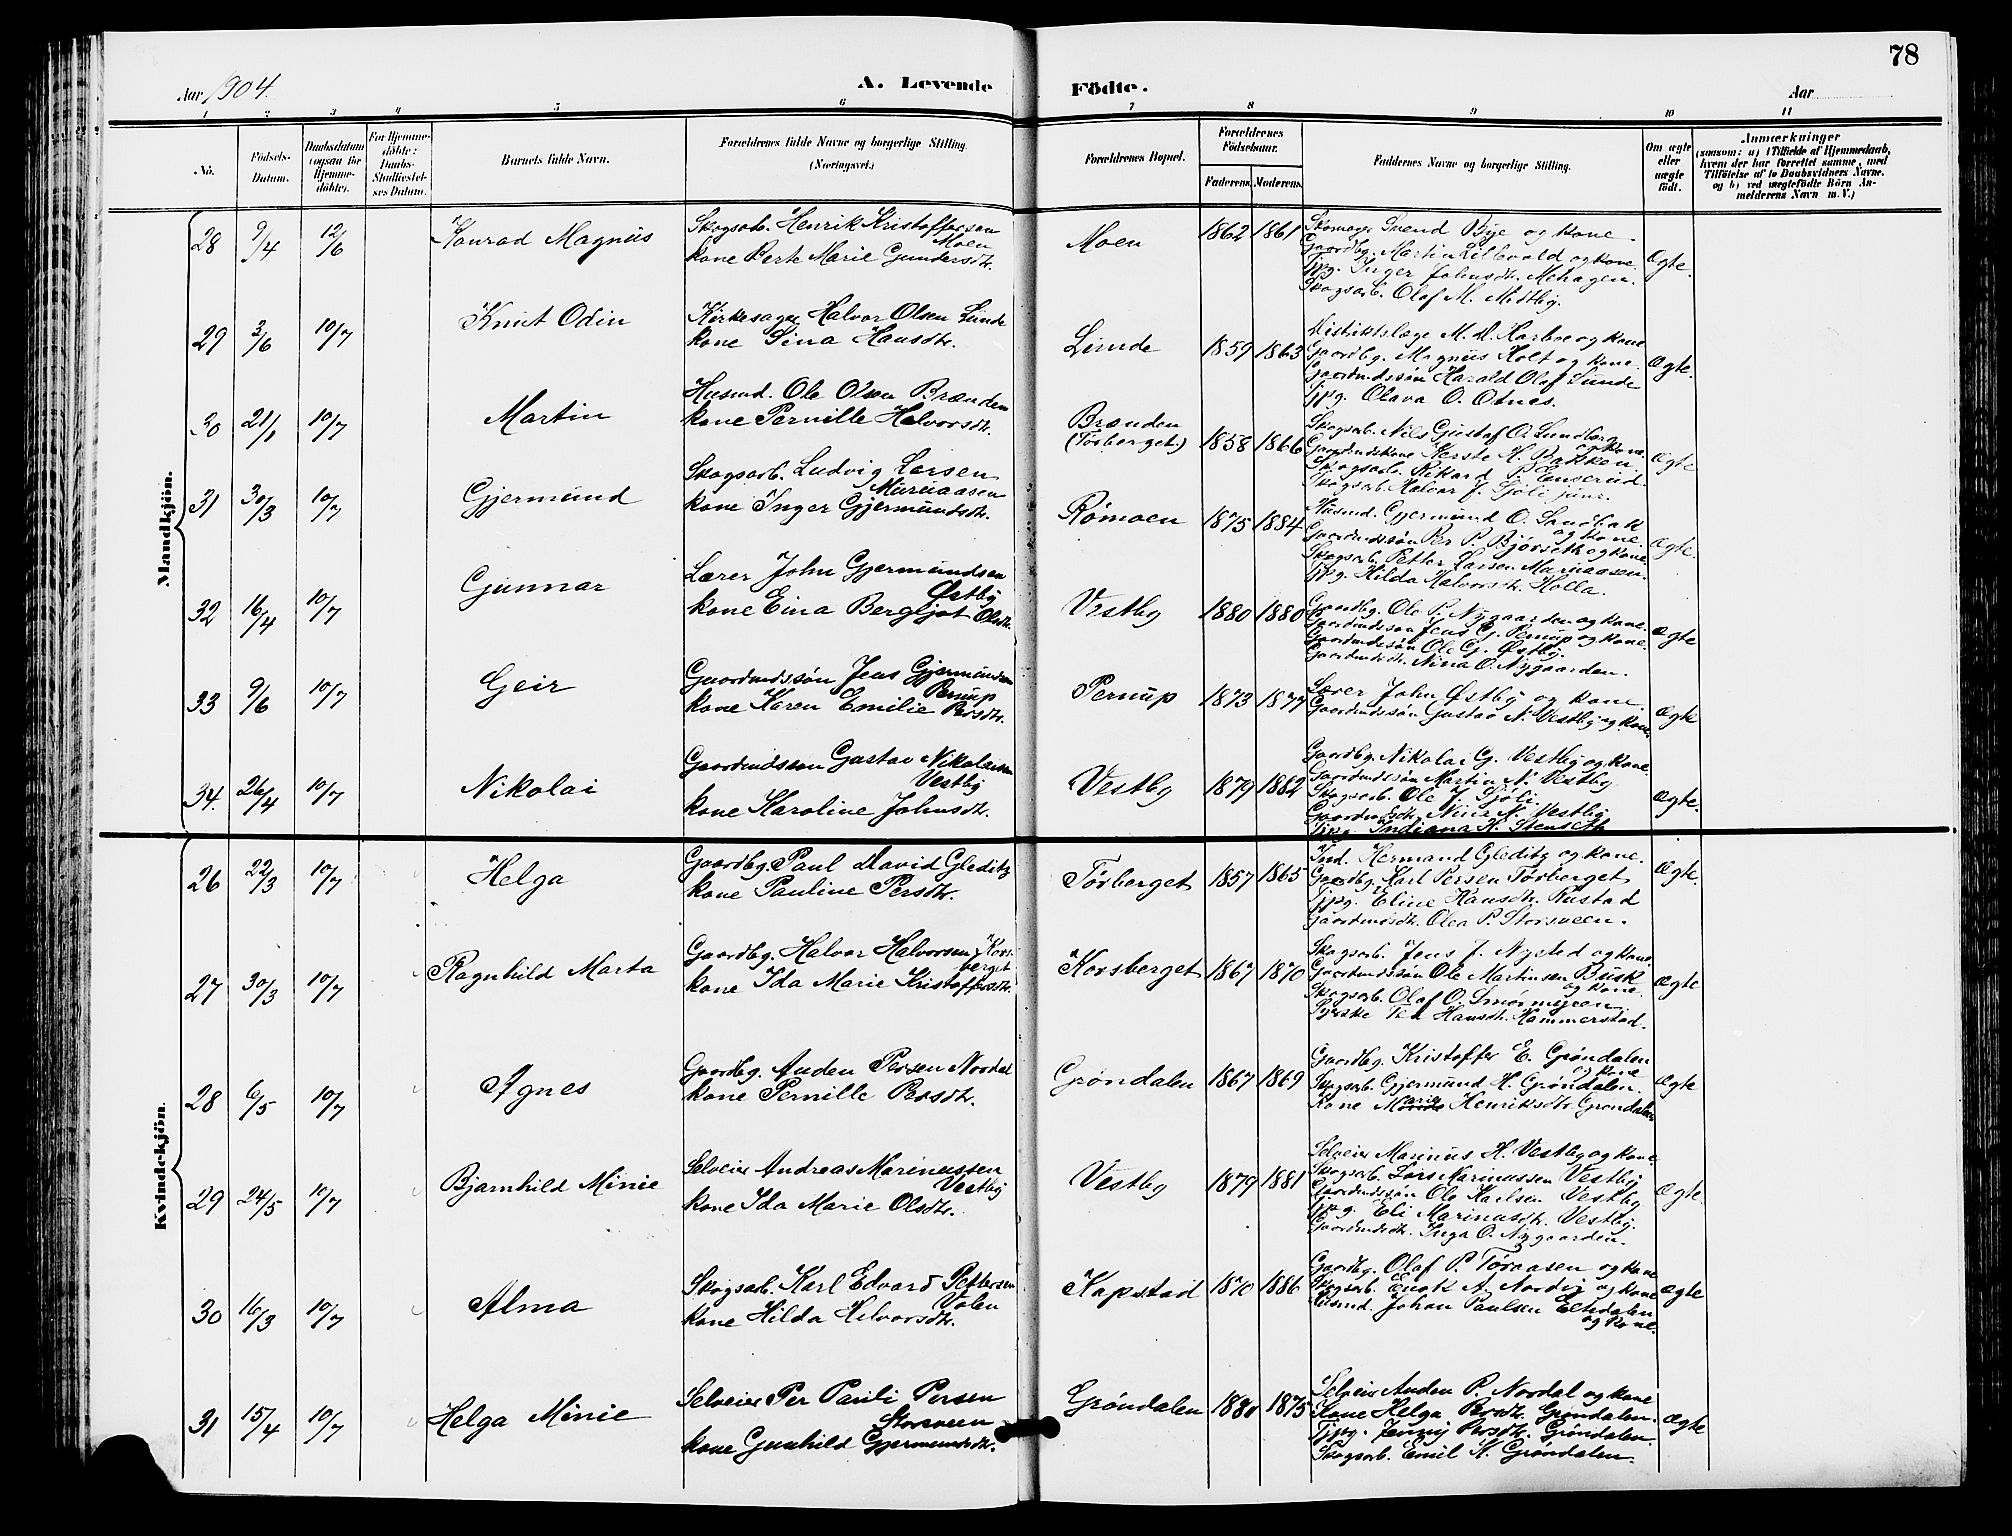 78
Aar 1904.
A. Levende Födte.
Aar
1 2 3 4 5 6 7 8 9 10 11
No.
Födsels-Datum.
Daabsdatum (ogsaa for Hjemme-döbte).
For Hjemme-döbte: Daabs-Stadfæstel-ses Datum.
Barnets fulde Navn.
Forældrenes fulde Navne og borgerlige Stilling. (Næringsvei.)
Forældrenes Bopæl.
Forældrenes Födselsaar.
Faderens. Moderens.
Faddernes Navne og borgerlige Stilling.
Om ægte eller uægte födt.
Anmærkninger
(saasom: a) i Tilfælde af Hjemmedaab, hvem der har forrettet samme, med Tilföielse af to Daabsvidners Navne, og b) ved uægtefödte Börn An-melderens Navn m. V.)
Mandkjön.
28 9/4 12/6 Konrad Magnus
Skogsarb. Henrik Kristoffersen Moen
kone Berte Marie Gundersdtr.
Moen 1862 1861
Skomager Svend Bye og kone.
Gaardbg. Martin Lilbvold og kone.
Tjpg. Inger Johnsdtr. Mehagen.
Skogsarb. Olaf M. Midtby.
Ægte.
29 3/6 10/7 Knut Odin
Kirkesanger Halvor Olsen Lunde
kone Sina Hansdtr.
Lunde 1859 1863
Distriktslæge M. D. Harboe og kone
Gaardbg. Magnus Holt og kone.
Gaardmdssøn Harald Olaf Lunde
Tjpg. Olava O. Otnes.
Ægte.
30 21/1 10/7 Martin
Husmd. Ole Olsen Brænden
kone Pernille Halvorsdtr.
Brænden (Törberget) 1858 1866
Skogsarb. Nils Gustaf O. Lundberg og kone.
Gaardmdskone Kerste H. Bakken
Skogsarb. Rikard P. Enserud.
Skogsarb. Halvor J. Sjöli junr.
Ægte
31 30/3 10/7 Gjermund
Skogsarb. Ludvig Larsen Muruaasen
kone Inger Gjermundsdtr.
Römoen 1875 1884
Husmd. Gjermund O. Sandbak og kone.
Gaardmdssøn Per P. Bjørseth og kone
Skogsarb. Petter Larsen Muruaasen.
Tjpg. Hilda Halvorsdtr. Holla.
Ægte.
32 16/4 10/7 Gunnar
Lærer John Gjermundsen Østby
kone Eina Bergljot Olsdtr.
Vestby 1880 1880
Gaardbg. Ole P. Nygaarden og kone.
Gaardmdssøn Jens G. Pernup og kone.
Gaardmdssøn Ole G. Østby.
Gaardmdsdtr. Nina O. Nygaarden.
Ægte
33 9/6 10/7 Geir
Gaardmdssön Jens Gjermundsen Pernup
kone Karen Emilie Persdtr.
Pernup 1873 1877
Lærer John Østby og kone.
Gaardmdssøn Gustav N. Vestby og kone.
Ægte
34. 26/4 10/7 Nikolai
Gaardmdssøn Gustav Nikolaisen Vestby
kone Karoline Johnsdtr.
Vestby 1879 1882
Gaardbg. Nikolai G. Vestby og kone.
Gaardmdssøn Martin N. Vestby
Skogsarb. Ole J. Sjöli.
Gaardmdsdtr. Nina N. Vestby
Tjpg. Indiana H. Stenseth
Ægte.
Kvindekjön.
26 22/3 10/7 Helga
Gaardbg. Paul David Gleditz
kone Pauline Persdtr.
Törberget 1857 1865
Ind. Hermand Gleditz og kone.
Gaardbg. Karl Persen Törberget
Tjpg. Eline Hansdtr. Rustad
Gaardmdsdtr. Olea P. Storsveen.
Ægte.
27 30/3 10/7 Ragnhild Marta
Gaardbg. Halvor Halvorsen Korsberget
kone Ida Marie Kristoffersdtr.
Korsberget 1867 1870
Skogsarb. Jens J. Nysted og kone.
Gaardmdssøn Ole Martinsen Busk og kone.
Skogsarb. Olaf O. Smørmyren
Pyrske Tea Hansdtr. Hammerstad.
Ægte
28 6/5 10/7 Agnes
Gaardbg. Anden Persen Nordal
kone Pernille Persdtr.
Grøndalen 1867 1869
Gaardbg. Kristoffer E. Grøndalen og kone
Skogsarb. Gjermund H. Grøndalen.
Kone Marie Henriksdtr. Grøndalen
Ægte
29 24/5 10/7 Bjarnhild Minie
Selveier Andreas Marinussen Vestby
kone Ida Marie Olsdtr.
Vestby 1879 1881
Selveier Marinus H. Vestby og kone.
Skogsarb. Lars Marinussen Vestby
Gaardmdssøn Ole Karlsen Vestby
Tjpg. Eli Marinusdtr. Vestby.
Gaardmdsdtr. Inga O. Nygaarden.
Ægte.
30 16/3 10/7 Alma
Skogsarb. Karl Edvard Pettersen Volen
kone Hilda Halvorsdtr.
Kapstad 1870 1886
Gaardbg. Olaf P. Töraasen og kone
Skogsarb. Enok A. Nordvi og kone
Husmd. Johan Paulsen Eltdalen og kone.
Ægte
31 15/4 10/7 Helga Minie
Selveier Per Pauli Persen Storsveen
kone Gunhild Gjermundsdtr.
Grøndalen 1881 1875
Selveier Anden P. Nordal og kone
Kone Helga Persdtr. Grøndalen.
Tjpg. Jenny Persdtr. Grøndalen.
Skogsarb. Emil K. Grøndalen.
Ægte